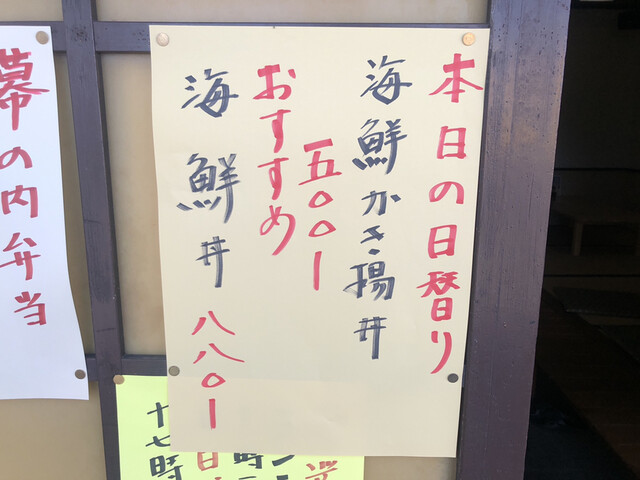 本日の日替り
海鮮かき揚丼
一五〇〇ー
おすすめ
海鮮丼 八八〇ー
幕の内弁当
十七時